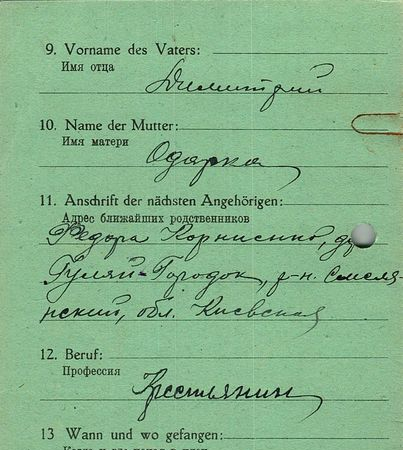 9. Vorname des Vaters:
Имя отца
Димитрий
10. Name der Mutter:
Имя матери
Одарка
11. Anschrift der nächsten Angehörigen:
Адрес ближайших родственников
Федора Корниенко, де
Гуляй-Городок, р-н. Смеля-
нский, обл. Киевская
12. Beruf:
Профессия
Крестьянин
13 Wann und wo gefangen: